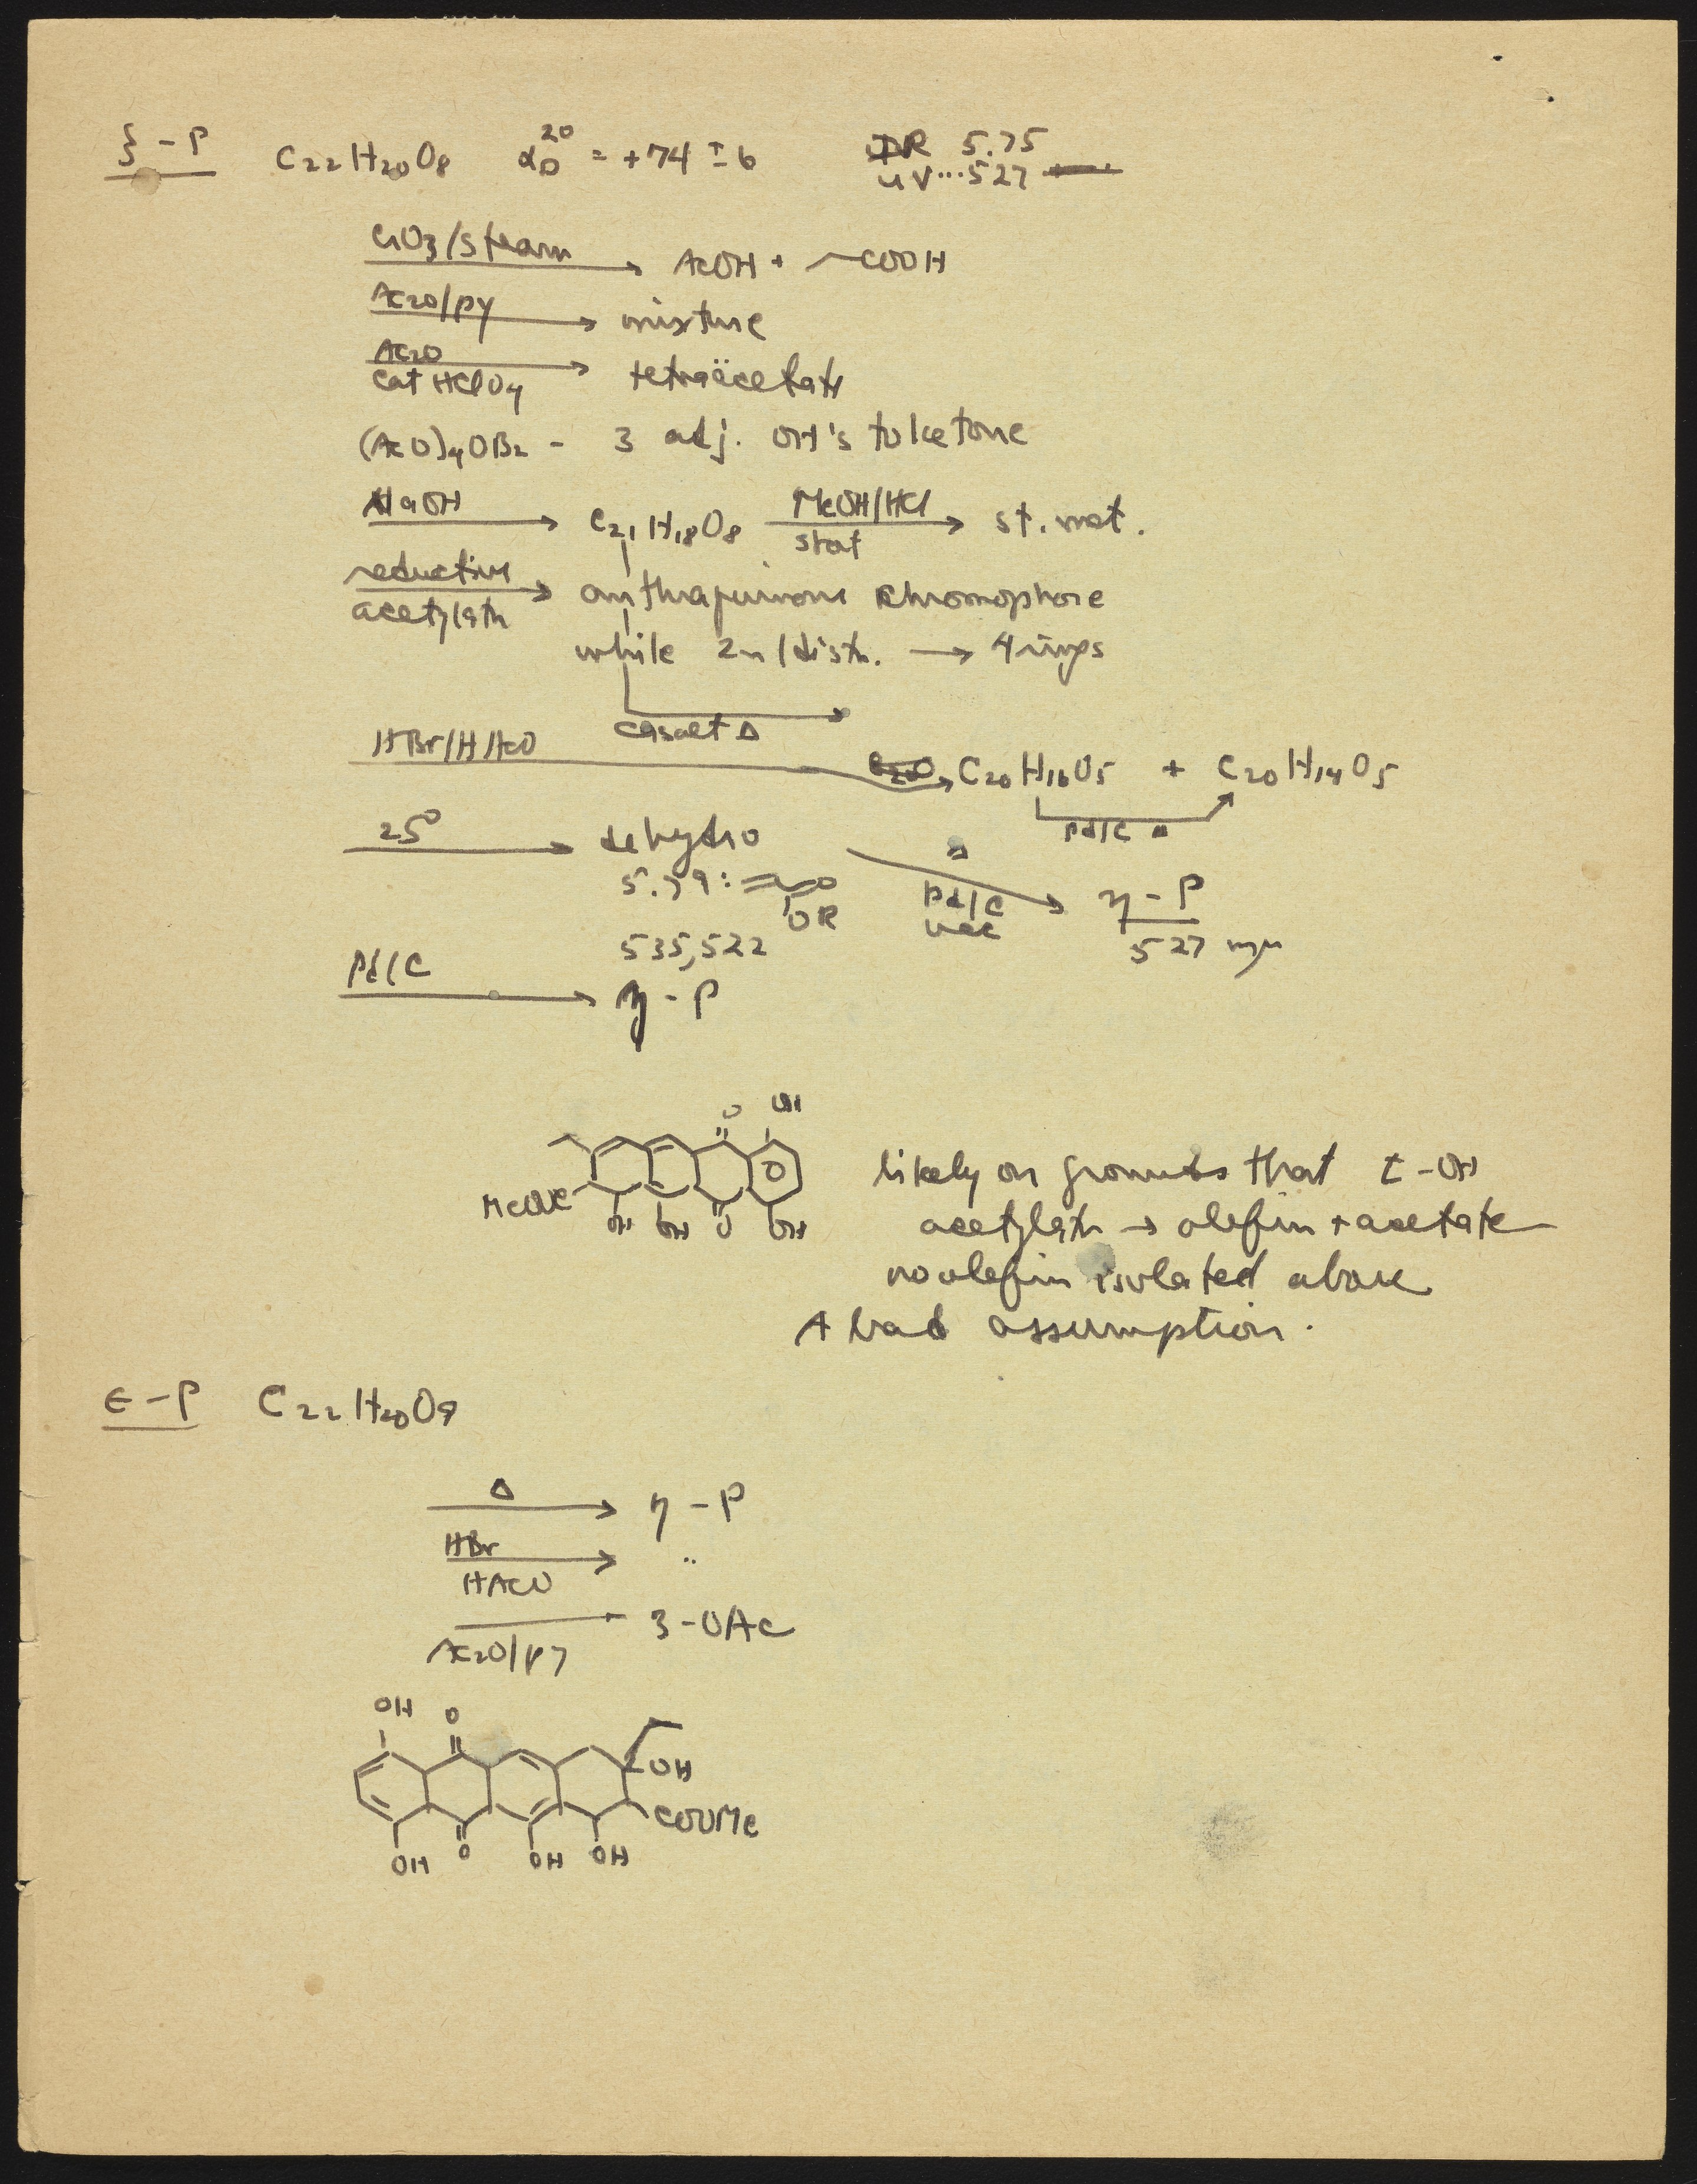 ξ - P C22H20O8 αD20 = +74 ± 6 IR 5.75
UV...527
CrO3/steam → AcOH + COOH
Ac2O/py → mixture
Ac2O
cat HClO4 → tetraäcetate
(AcO)4OB2 - 3 adj. OH's to ketone
NaOH → C21H18O8 MeOH/HCl → st. mat.
stat
reductive → anthraquinone chromophore
acetylatn
while Zn/distn. → 4 rings
HBr/HAcO
C20H16O5 + C20H14O5
Pd/C Δ
25° → dehydro Δ
5.79: O
OR
Pd/C → η - P
vac
535,522 527 mμ
Pd/C → η - P
O OH
MeOOC OH OH O OH
likely on grounds that t-OH
acetylatn → olefin + acetate
no olefin isolated above
A bad assumption.
ε - P C22H20O9
Δ → η - P
HBr → "
HAcO
Ac2O/py → 3-OAc
OH O
OH
COOMe
OH O OH OH